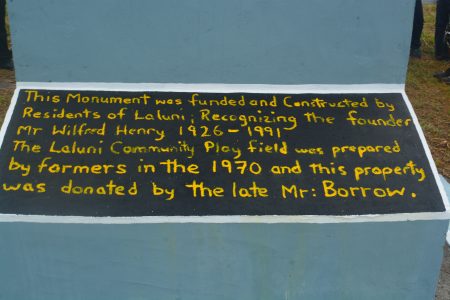 This Monument was funded and Constructed by
Residents of Laluni, Recognizing the founder
Mr Wilfred Henry 1926-1991
The Laluni Community Play field was prepared
by farmers in the 1970 and this property
was donated by the late Mr: Borrow.